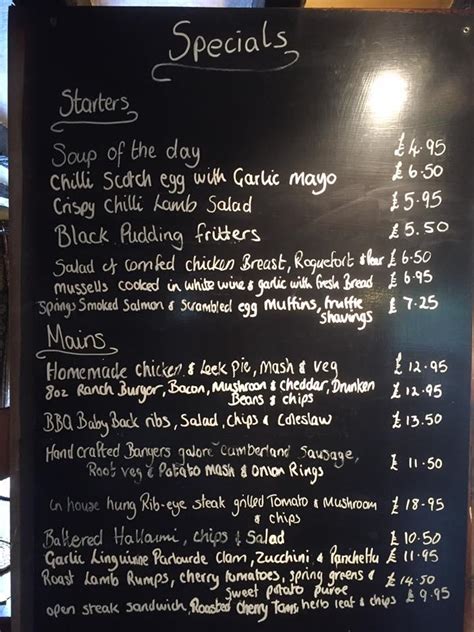 Specials
Starters
Soup of the day £4.95
Chilli Scotch egg with Garlic mayo £6.50
Crispy Chilli Lamb Salad £5.95
Black Pudding fritters £5.50
Salad of cornfed chicken Breast, Roquefort & Pear £6.50
mussells cooked in white wine & garlic with fresh Bread £6.95
Springs Smoked Salmon & Scrambled egg Muffins, truffle £7.25
shavings
Mains
Homemade chicken & Leek pie, Mash & veg £12.95
8oz Ranch Burger, Bacon, Mushroom & cheddar, Drunken £12.95
Beans & chips
BBQ Baby Back ribs, Salad, chips & Coleslaw £13.50
Hand Crafted Bangers galore Cumberland Sausage,
Root veg & Potato mash & Onion Rings £11.50
In house hung Rib-eye steak grilled Tomato & Mushroom £18.95
& chips
Battered Halloumi, chips & Salad £10.50
Garlic Linguinne Parlourde Clam, Zucchini & Panchetta £11.95
Roast Lamb Rumps, cherry tomatoes, spring greens & £14.50
sweet potato puree
open steak sandwich, Roasted Cherry Toms, herb leaf & chips £9.95